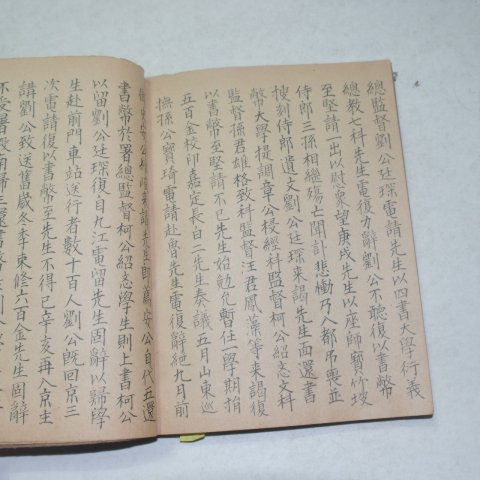 總監督劉公廷琛電請先生以四書大學衍義
總教七科先生電復力辭劉公不聽復以書幣
至堅請一出以慰眾望庚戌先生以座師寶竹坡
侍郎三孫相繼殤亡聞訃悲慟乃入都弔喪並
搜刻侍郎遺文劉公廷琛來謁先生面還書
幣大學提調章公梫經科監督柯公紹忞文科
監督孫君雄格致科監督汪君鳳藻等來謁復
以書幣至堅請不已先生始勉允暫住一學期指
五百金校印嘉定長白二先生奏議五月山東巡
撫孫公寶琦電請赴魯先生電復辭絕九月前
自代五還
書幣於署總監督柯公紹忞學生則上書柯公
以留劉公廷琛復自九江電留先生固辭以歸學
生赴前門車站送行者數十百人劉公既回京三
次電請復以書幣至先生不得已辛亥再入京主
講劉公致送舊歲冬季束修六百金先生固辭